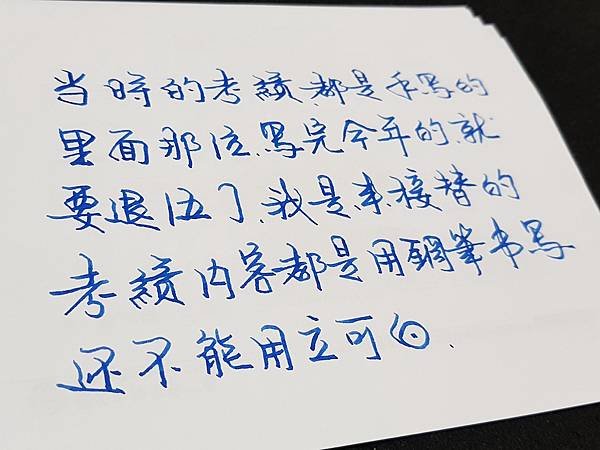 当時的考績,都是手写的
里面那位,写完今年的,就
要退伍了,我是来接替的
考績内容都是用鋼筆书写
还不能用立可白.